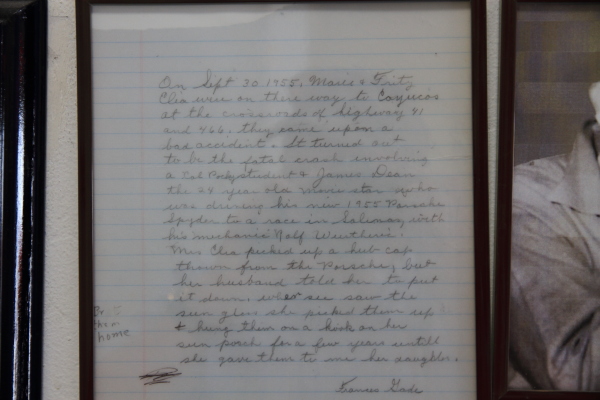 On Sept 30 1955, Marie & Fritz
Clia were on there way to Cayucos
at the crossroads of highway 41
and 466, they came upon a
bad accident. It turned out
to be the fatal crash involving
a Cal Poly student & James Dean
the 24 year old Movie star who
was driving his new 1955 Porsche
Spyder to a race in Salinas, with
his mechanic Rolf
Mrs Clia picked up a hub cap
thrown from the Porsche, but
her husband told her to put
it down, when see saw the
sun glass she picked them up
& hung them on a hook on her
sun porch for a few years untill
she gave them to me her daughter.
Frances
Br
them
home